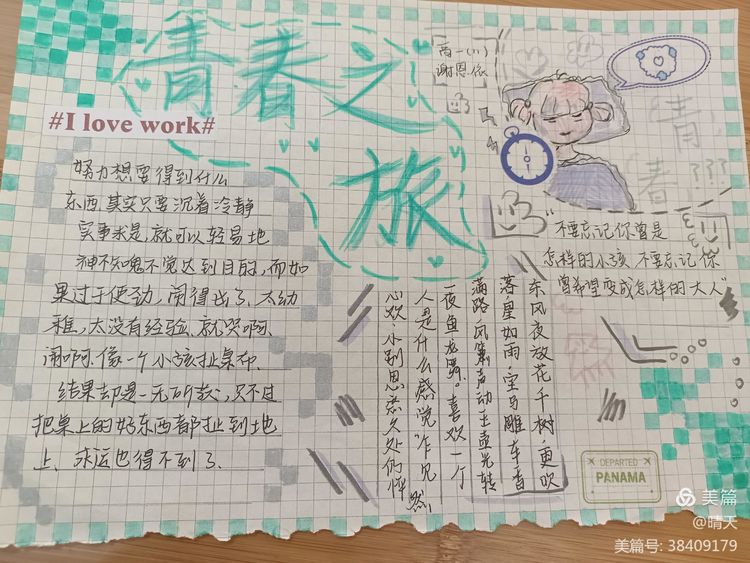 青春之旅
高一(1)
谢恩依
#I love work#
努力想要得到什么
东西,其实只要沉着冷静
实事求是,就可以轻易地
神不知鬼不觉达到目的,而如
果过于使劲,闹得出了,太幼
稚,太没有经验,就哭啊,
闹啊,像一个小孩扯桌布,
结果却是一无所获,只不过
把桌上的好东西都扯到地
上、永远也得不到了.
青春???
"不要忘记你曾是
怎样的小孩 不要忘记你
曾希望变成怎样的大人"
东风夜放花千树.更吹
落.星如雨.宝马雕车香
满路.凤箫声动玉壶光转
一夜鱼龙舞。喜欢一个
人是什么感觉"乍见
心欢,小别思恋久处仍怦然,
DEPARTED
PANAMA
美篇
@晴天
美篇号: 38409179